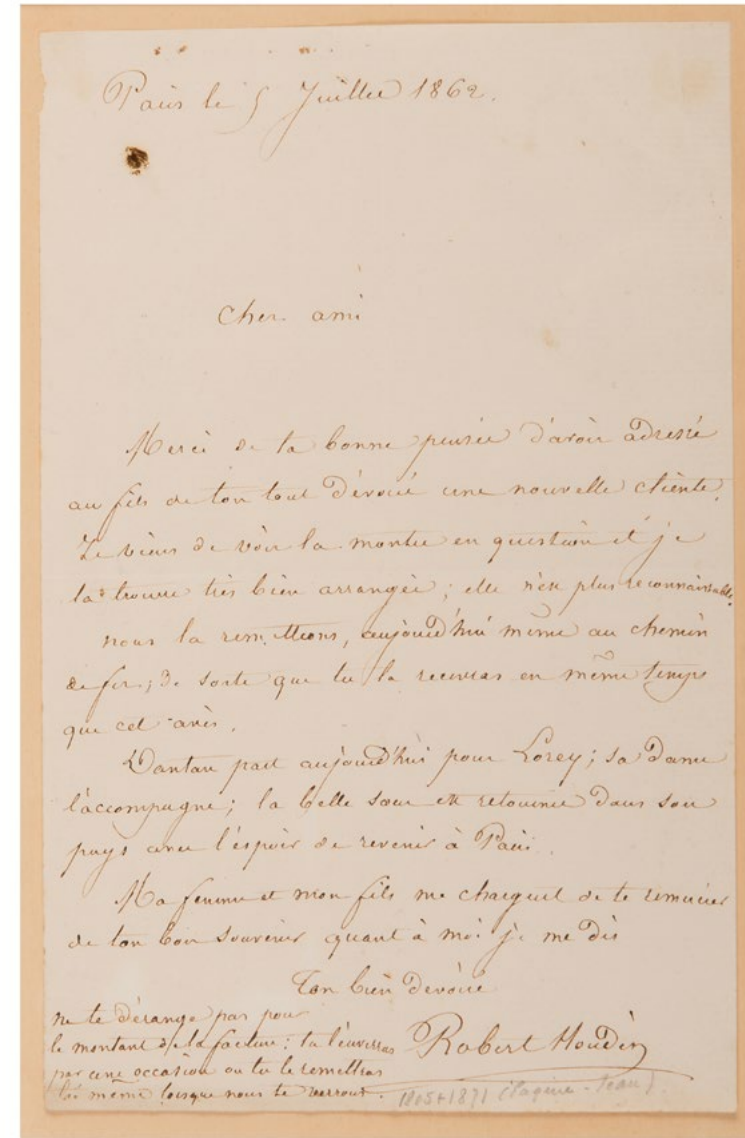 Paris le 5 Juillet 1862.
Cher ami
Merci de ta bonne pensée d'avoir adressé
au fils de ton tout dévoué une nouvelle cliente.
Je viens de voir la montre en question et je
la trouve très bien arrangée ; elle n'est plus reconnaissable.
nous la remettons, aujourd'hui même au chemin
de fer ; de sorte que tu la recevras en même temps
que cet avis.
Dantan part aujourd'hui pour Lorey ; sa dame
l'accompagne ; la belle sœur est retournée dans son
pays avec l'espoir de revenir à Paris.
Ma femme et mon fils me chargent de te remercier
de ton bon souvenir quant à moi je me dis
Ton bien dévoué
Robert Houdin
ne te dérange pas pour
le montant de la facture : tu l'enverras
par une occasion ou tu le remettras
toi même lorsque nous te verrons.
1805+1871 (Eugène-Jean)